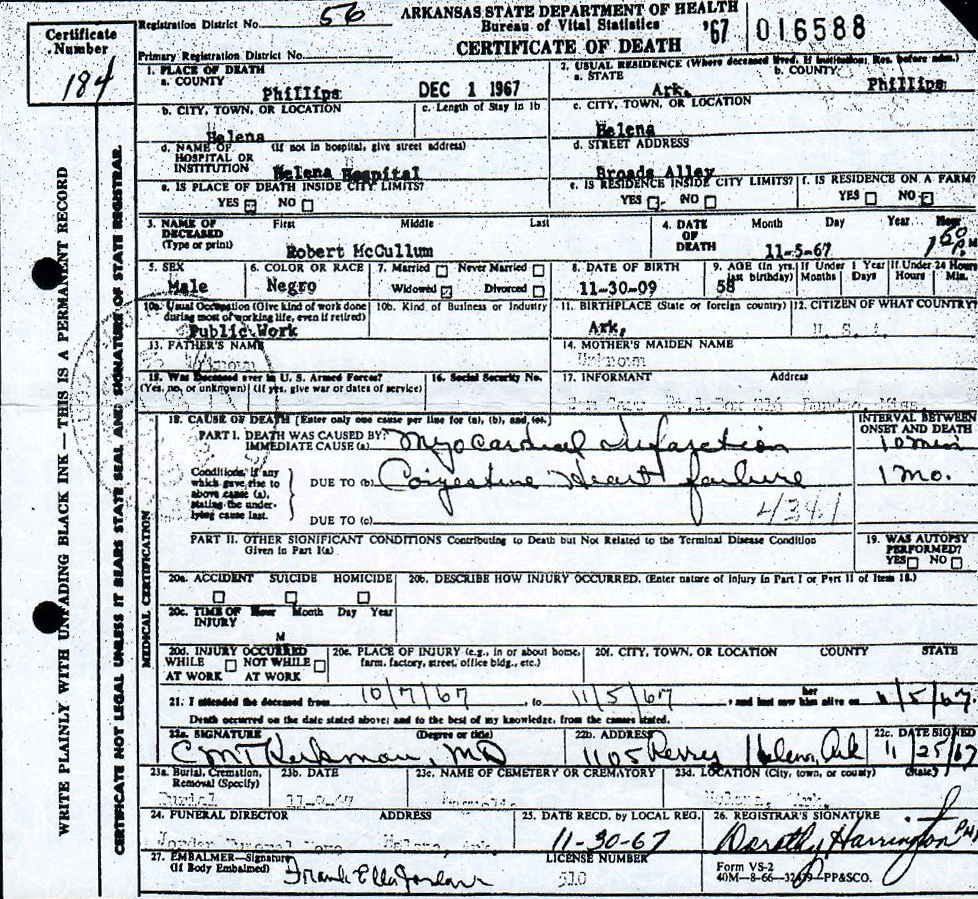 Certificate Number
184
WRITE PLAINLY WITH UNFADING BLACK INK — THIS IS A PERMANENT RECORD
CERTIFICATE NOT LEGAL UNLESS IT BEARS STATE SEAL AND SIGNATURE OF STATE REGISTRAR.
Registration District No. 56
ARKANSAS STATE DEPARTMENT OF HEALTH
Bureau of Vital Statistics
CERTIFICATE OF DEATH
'67 016588
Primary Registration District No.
1. PLACE OF DEATH
a. COUNTY
Phillips
DEC 1 1967
2. USUAL RESIDENCE (Where deceased lived. If institution; Res. before adm.)
a. STATE b. COUNTY
Ark. Phillips
b. CITY, TOWN, OR LOCATION c. Length of Stay in 1b
Helena
c. CITY, TOWN, OR LOCATION
Helena
d. NAME OF HOSPITAL OR INSTITUTION (If not in hospital, give street address)
Helena Hospital
d. STREET ADDRESS
Broads Alley
e. IS PLACE OF DEATH INSIDE CITY LIMITS?
YES NO
e. IS RESIDENCE INSIDE CITY LIMITS?
YES NO
f. IS RESIDENCE ON A FARM?
YES NO
3. NAME OF DECEASED (Type or print) First Middle Last
Robert McCullum
4. DATE OF DEATH Month Day Year Hour
11-5-67
5. SEX
Male
6. COLOR OR RACE
Negro
7. Married Never Married
Widowed Divorced
8. DATE OF BIRTH
11-30-09
9. AGE (In yrs. last birthday) If Under 1 Year Months Days If Under 24 Hours Hours Min.
58
10a. Usual Occupation (Give kind of work done during most of working life, even if retired)
Public Work
10b. Kind of Business or Industry
11. BIRTHPLACE (State or foreign country)
Ark,
12. CITIZEN OF WHAT COUNTRY
U. S.
13. FATHER'S NAME
Unknown
14. MOTHER'S MAIDEN NAME
Unknown
15. Was Deceased ever in U. S. Armed Forces?
(Yes, no, or unknown) (If yes, give war or dates of service)
16. Social Security No.
17. INFORMANT Address
18. CAUSE OF DEATH [Enter only one cause per line for (a), (b), and (c).]
INTERVAL BETWEEN ONSET AND DEATH
PART I. DEATH WAS CAUSED BY:
IMMEDIATE CAUSE (a) Myocardial Infarction 10 min
Conditions, if any which gave rise to above cause (a), stating the underlying cause last.
DUE TO (b) Congestive Heart failure 1 mo.
DUE TO (c) 4341
PART II. OTHER SIGNIFICANT CONDITIONS Contributing to Death but Not Related to the Terminal Disease Condition Given in Part I(a)
19. WAS AUTOPSY PERFORMED?
YES NO
20a. ACCIDENT SUICIDE HOMICIDE
20b. DESCRIBE HOW INJURY OCCURRED. (Enter nature of Injury in Part I or Part II of Item 18.)
20c. TIME OF INJURY Hour Month Day Year
M
20d. INJURY OCCURRED
WHILE AT WORK NOT WHILE AT WORK
20e. PLACE OF INJURY (e.g., in or about home, farm, factory, street, office bldg., etc.)
20f. CITY, TOWN, OR LOCATION COUNTY STATE
21. I attended the deceased from 10/7/67, to 11/5/67, and last saw her him alive on 11/5/67.
Death occurred on the date stated above; and to the best of my knowledge, from the causes stated.
22a. SIGNATURE (Degree or title)
MD
22b. ADDRESS
1105 Perry Helena, Ark
22c. DATE SIGNED
11/25/67
23a. Burial, Cremation, Removal (Specify)
Burial
23b. DATE
11-9-67
23c. NAME OF CEMETERY OR CREMATORY
23d. LOCATION (City, town, or county) (State)
Helena, Ark.
24. FUNERAL DIRECTOR ADDRESS
Helena, Ark.
25. DATE RECD. by LOCAL REG.
11-30-67
26. REGISTRAR'S SIGNATURE
Dorothy Harrington
27. EMBALMER—Signature (If Body Embalmed)
LICENSE NUMBER
510
Form VS-2